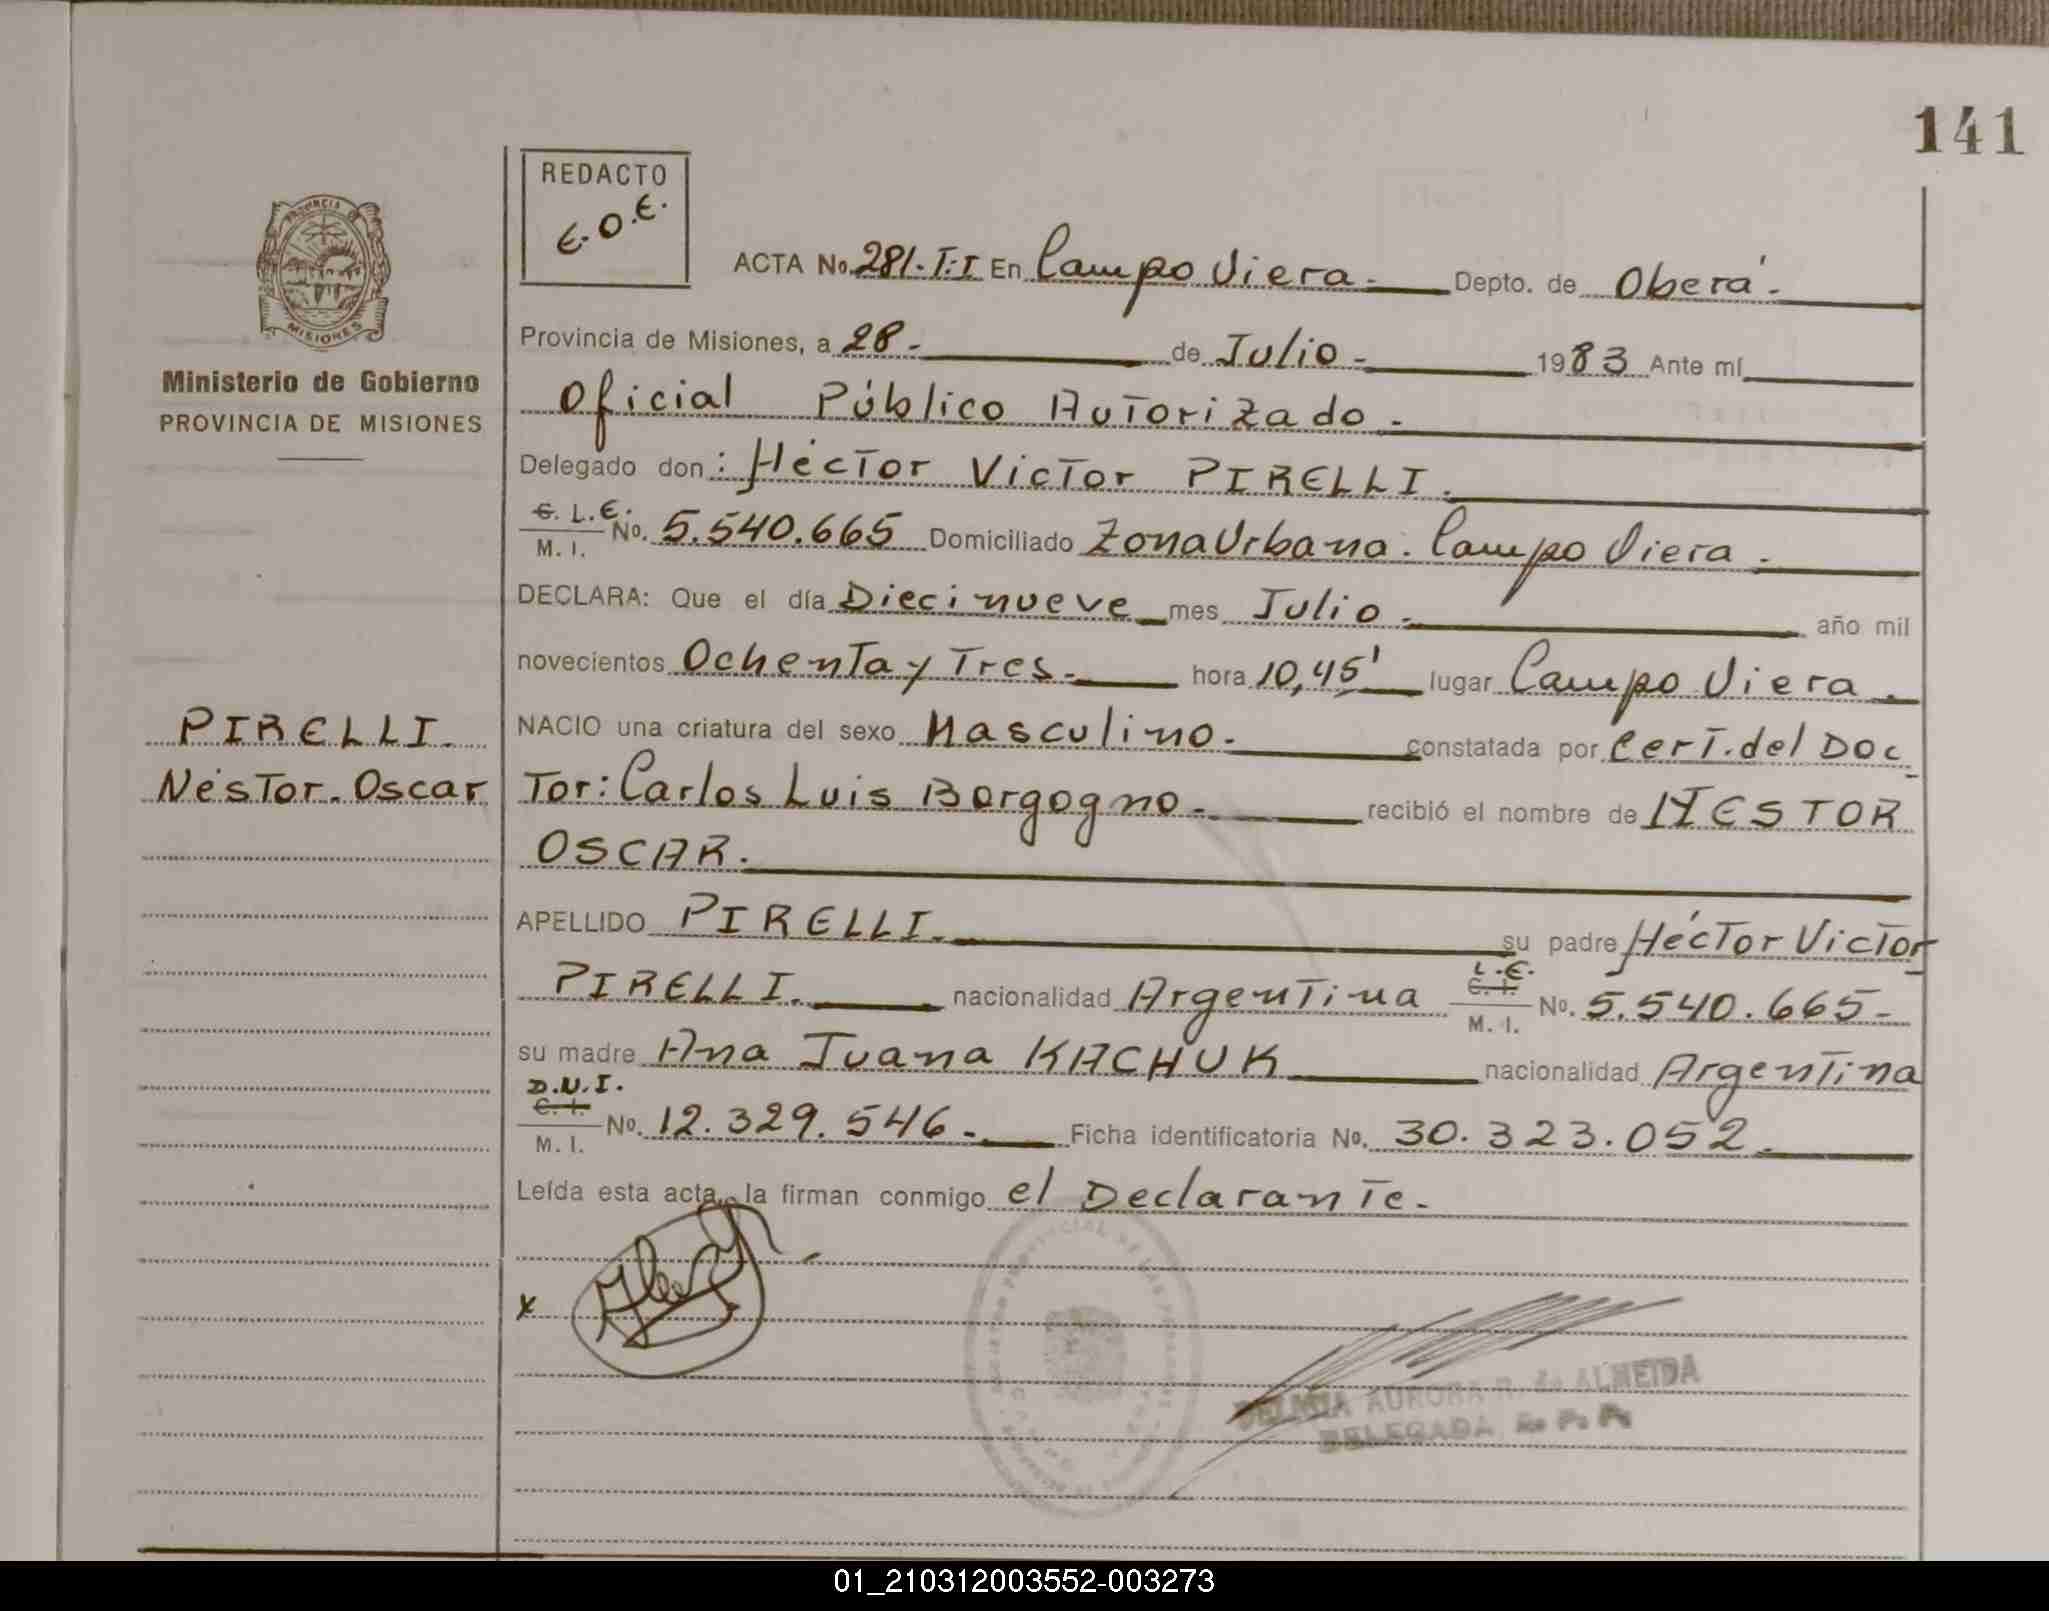 141
REDACTO
E.O.E.
PROVINCIA
MISIONES
Ministerio de Gobierno
PROVINCIA DE MISIONES
ACTA No. 281. T:I En Campo Viera.- Depto. de Oberá.-
Provincia de Misiones, a 28.- de Julio.- 1983 Ante mí
Oficial Público Autorizado.-
Delegado don: Héctor Victor PIRELLI.
C. L.E.
M. I. No. 5.540.665 Domiciliado Zona Urbana. Campo Viera.-
DECLARA: Que el día Diecinueve mes Julio.- año mil
novecientos Ochenta y Tres.- hora 10,45' lugar Campo Viera.
PIRELLI.
NACIO una criatura del sexo Masculino.- constatada por Cert. del Doc-
Néstor. Oscar
tor: Carlos Luis Borgogno.- recibió el nombre de NESTOR
OSCAR.
APELLIDO PIRELLI. su padre Héctor Victor
PIRELLI. nacionalidad Argentina L.E. C. I. M. I. No. 5.540.665-
su madre Ana Juana KACHUK nacionalidad Argentina
D.N.I.
C. I.
M. I. No. 12.329.546.- Ficha identificatoria No. 30.323.052.
Leída esta acta, la firman conmigo el Declarante.-
x
DELMIA AURORA R. de ALMEIDA
DELEGADA R. P. P.
01_210312003552-003273